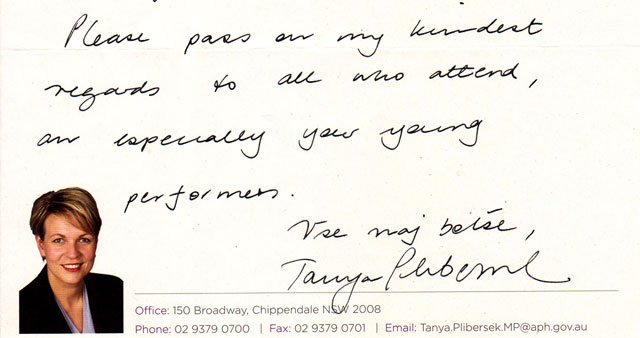 Please pass on my kindest
regards to all who attend,
an especially your young
performers.
Vse naj bolše,
Tanya Plibersek
Office: 150 Broadway, Chippendale NSW 2008
Phone: 02 9379 0700 | Fax: 02 9379 0701 | Email: Tanya.Plibersek.MP@aph.gov.au